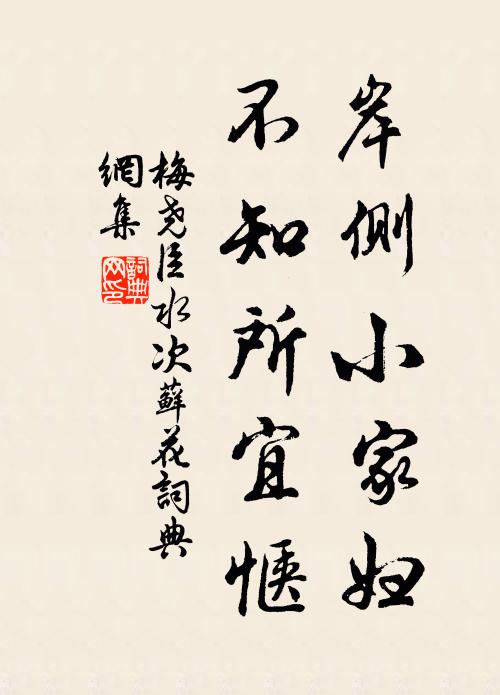 岸側小家婦
不知所宜愜
梅堯臣水次蘚花詞典
網集
詞典網印